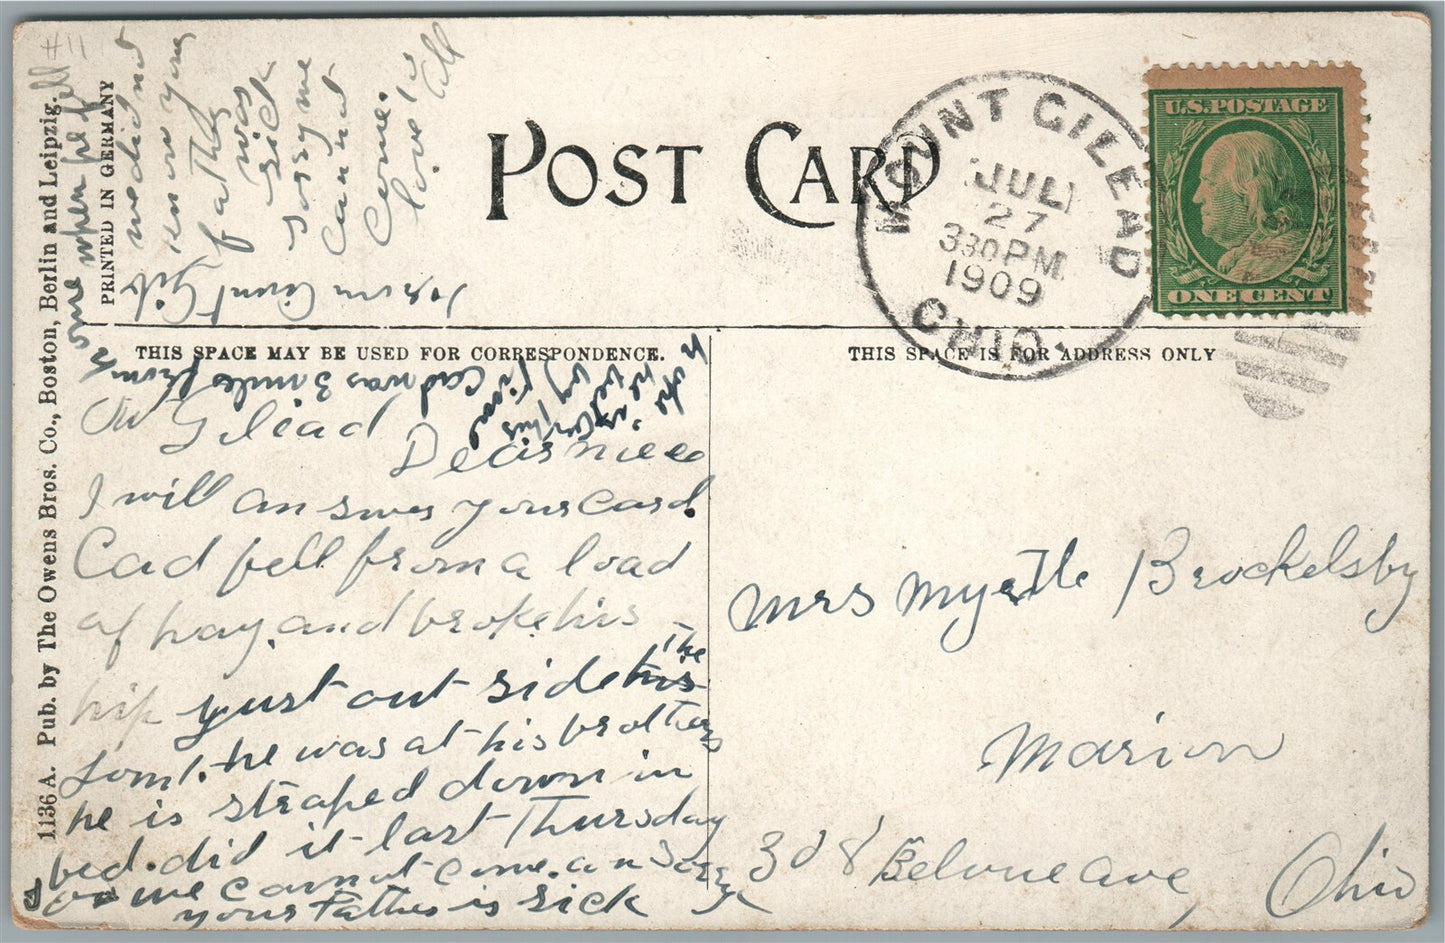 POST CARD
MOUNT GILEAD
JUL
27
330 PM
1909
OHIO
U.S. POSTAGE
ONE CENT
THIS SPACE MAY BE USED FOR CORRESPONDENCE.
THIS SPACE IS FOR ADDRESS ONLY
Mt Gilead
Dear niece
I will answer your card.
Cad fell from a load
of hay. and broke his
hip yust out side his the
he was at his brothers
he is straped down in
bed. did it last Thursday
we cannot come. am sorry
your Father is sick
Mrs Myrtle Brockelsby
Marion
308 Belvue ave,
Ohio
#11
we did not
know your
father
was
sick
sorry we
cannot
come.
love to
all
from Aunt
Cad was 3 miles from
home when he fell
1136 A. Pub. by The Owens Bros. Co., Boston, Berlin and Leipzig.
PRINTED IN GERMANY